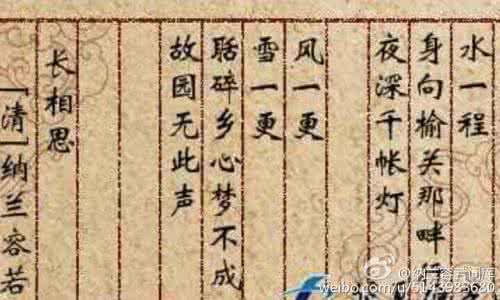 水一程
身向榆关那畔行
夜深千帐灯
风一更
雪一更
聒碎乡心梦不成
故园无此声
长相思
[清]纳兰容若
@纳兰容若词库
weibo.com/u/5143983680